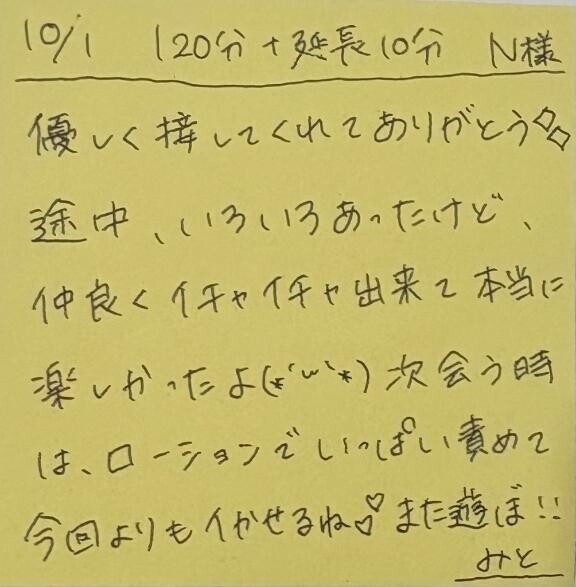 10/1 120分+延長10分 N様
優しく接してくれてありがとう
途中、いろいろあったけど、
仲良くイチャイチャ出来て本当に
楽しかったよ(*´ω`*)次会う時
は、ローションでいっぱい責めて
今回よりもイかせるね♡また遊ぼ!!
みと